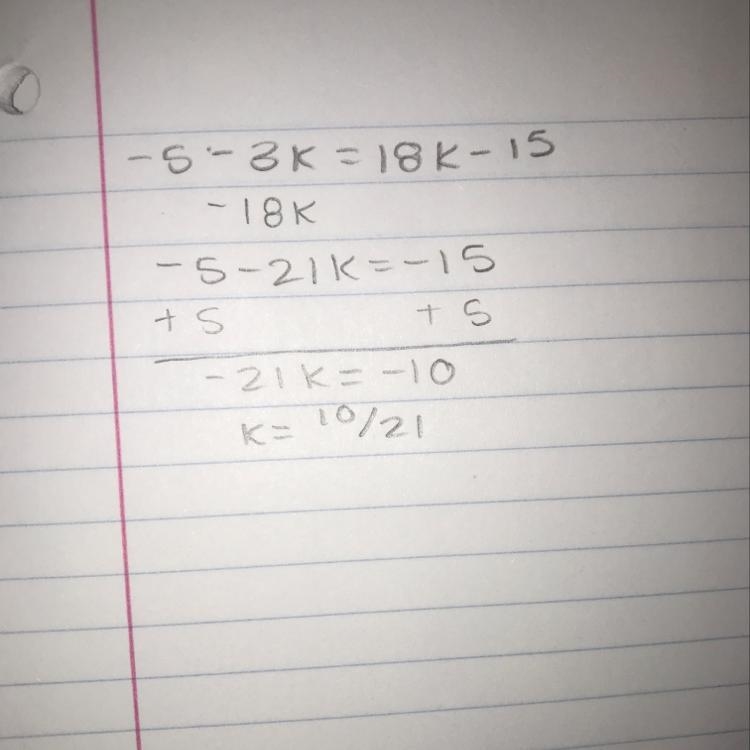 -5-3K=18K-15
-18K
-5-21K=-15
+5 +5
-21K=-10
K=10/21